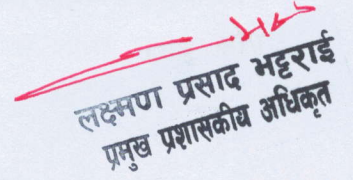 लक्ष्मण प्रसाद भट्टराई
प्रमुख प्रशासकीय अधिकृत